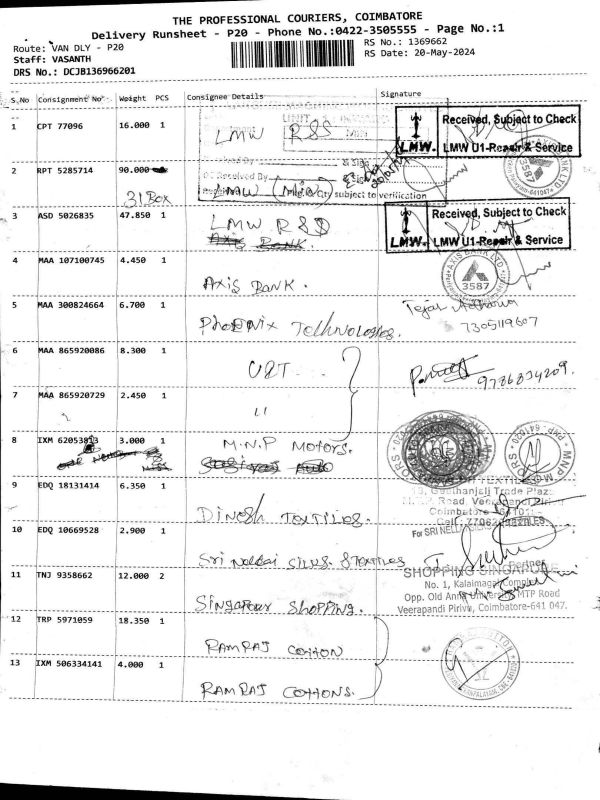 THE PROFESSIONAL COURIERS, COIMBATORE
Delivery Runsheet - P20 - Phone No.:0422-3505555 - Page No.:1
Route: VAN DLY - P20
RS No.: 1369662
Staff: VASANTH
RS Date: 20-May-2024
DRS No.: DCJB136966201
S.No Consignment No Weight PCS Consignee Details Signature
1 CPT 77096 16.000 1 LMW R&S
Received, Subject to Check
LMW. LMW U1-Repair & Service
2 RPT 5285714 90.000
31 Box
Received By
subject to verification
LMW
3587
641047
3 ASD 5026835 47.850 1 LMW R&D
Axis Bank.
Received, Subject to Check
LMW. LMW U1-Repair & Service
4 MAA 107100745 4.450 1 Axis Bank.
AXIS BANK LTD
3587
5 MAA 300824664 6.700 1 Phoenix Technologies.
7305119607
6 MAA 865920086 8.300 1
9786834209.
7 MAA 865920729 2.450 1 "
8 IXM 62053813 3.000 1 M.N.P Motors.
MNP MOTORS
PNP 641020
9 EDQ 18131414 6.350 1 Dinesh Textiles.
Geethanjali Trade Plaza
Coimbatore
10 EDQ 10669528 2.900 1 Sri Nellai Silks & Textiles
For SRI NELLAI
Partner
11 TNJ 9358662 12.000 2 Singapour Shopping.
SHOPPING SINGAPORE
No. 1, Kalaimagal Complex
Opp. Old Anna University, MTP Road
Veerapandi Pirivu, Coimbatore-641 047.
12 TRP 5971059 18.350 1 Ramraj Cotton
13 IXM 506334141 4.000 1 Ramraj Cottons.